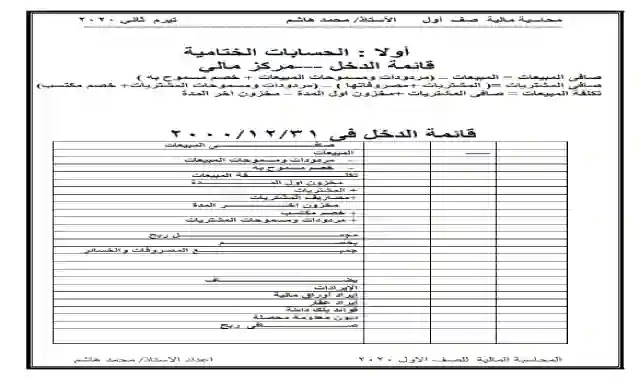 محاسبة مالية صف أول الأستاذ/ محمد هاشم تيرم ثاني ٢٠٢٠
أولا : الحسابات الختامية
قائمة الدخل ---مركز مالي
صافى المبيعات = المبيعات – (مردودات ومسموحات المبيعات + خصم مسموح به )
صافى المشتريات =( المشتريات +مصروفاتها ) – (مردودات ومسموحات المشتريات+ خصم مكتسب)
تكلفة المبيعات = صافى المشتريات +مخزون اول المدة – مخزون اخر المدة
قائمة الدخل فى ٢٠٠٠/١٢/٣١
صافى المبيعات
المبيعات
- مردودات ومسموحات المبيعات
- خصم مسموح به
تكلفة المبيعات
مخزون اول المدة
+ المشتريات
+مصاريف المشتريات
- مخزون اخر المدة
+ خصم مكتسب
+ مردودات ومسموحات المشتريات
مجمل ربح
يخصم
جميع المصروفات والخسائر
يضاف
الإيرادات
إيراد أوراق مالية
إيراد عقار
فوائد بنك دائنة
ديون معدومة محصلة
صافى ربح
المحاسبة المالية للصف الاول ٢٠٢٠ اعداد الاستاذ/ محمد هاشم